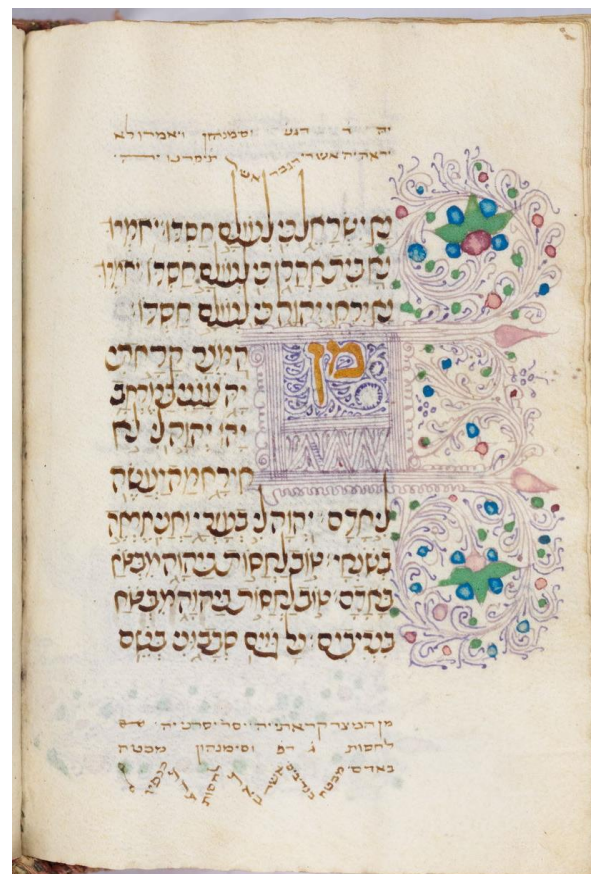 יה ד דגש וסימנהון ויאמרו לא
יראה יה אשרי הגבר אש תיסרנו יה
נא ישראל כי לעולם חסדו יאמרו
נא בית אהרן כי לעולם חסדו יאמרו
נא יראי יהוה כי לעולם חסדו
מן המצר קראתי
יה ענני במרחב
יה יהוה לי לא
אירא מה יעשה
לי אדם יהוה לי בעזרי ואני אראה
בשנאי טוב לחסות ביהוה מבטח
באדם טוב לחסות ביהוה מבטח
בנדיבים כל גוים סבבוני בשם
מן המצר קראתי יה יסר יסרני יה
לחסות ג וסימנהון מבטח
באדם מבטח בנדיבים אשר לחסות